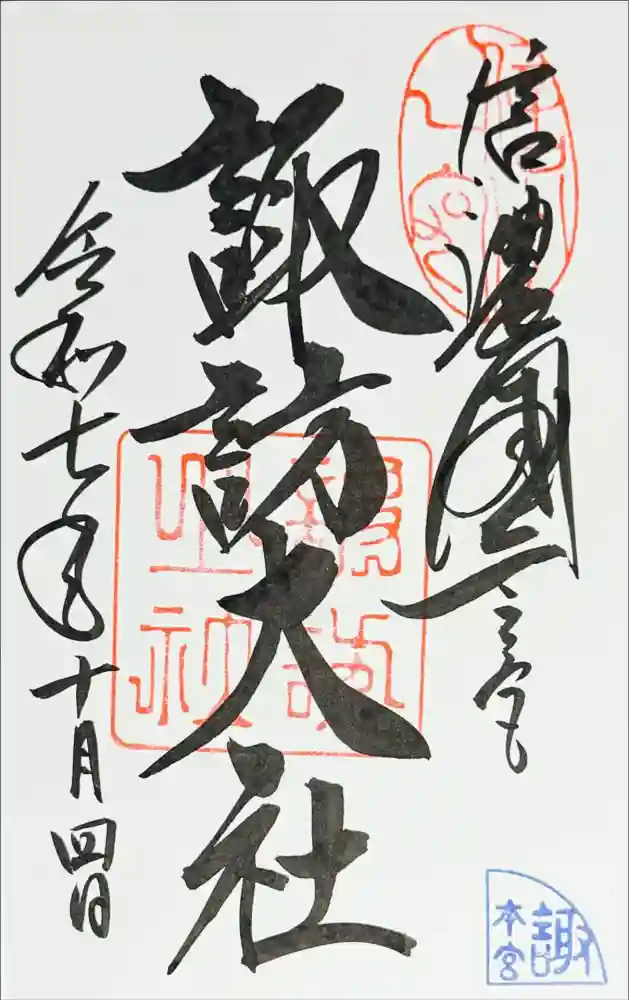 信濃國一之宮
諏訪大社
令和七年十月四日
諏訪
本宮